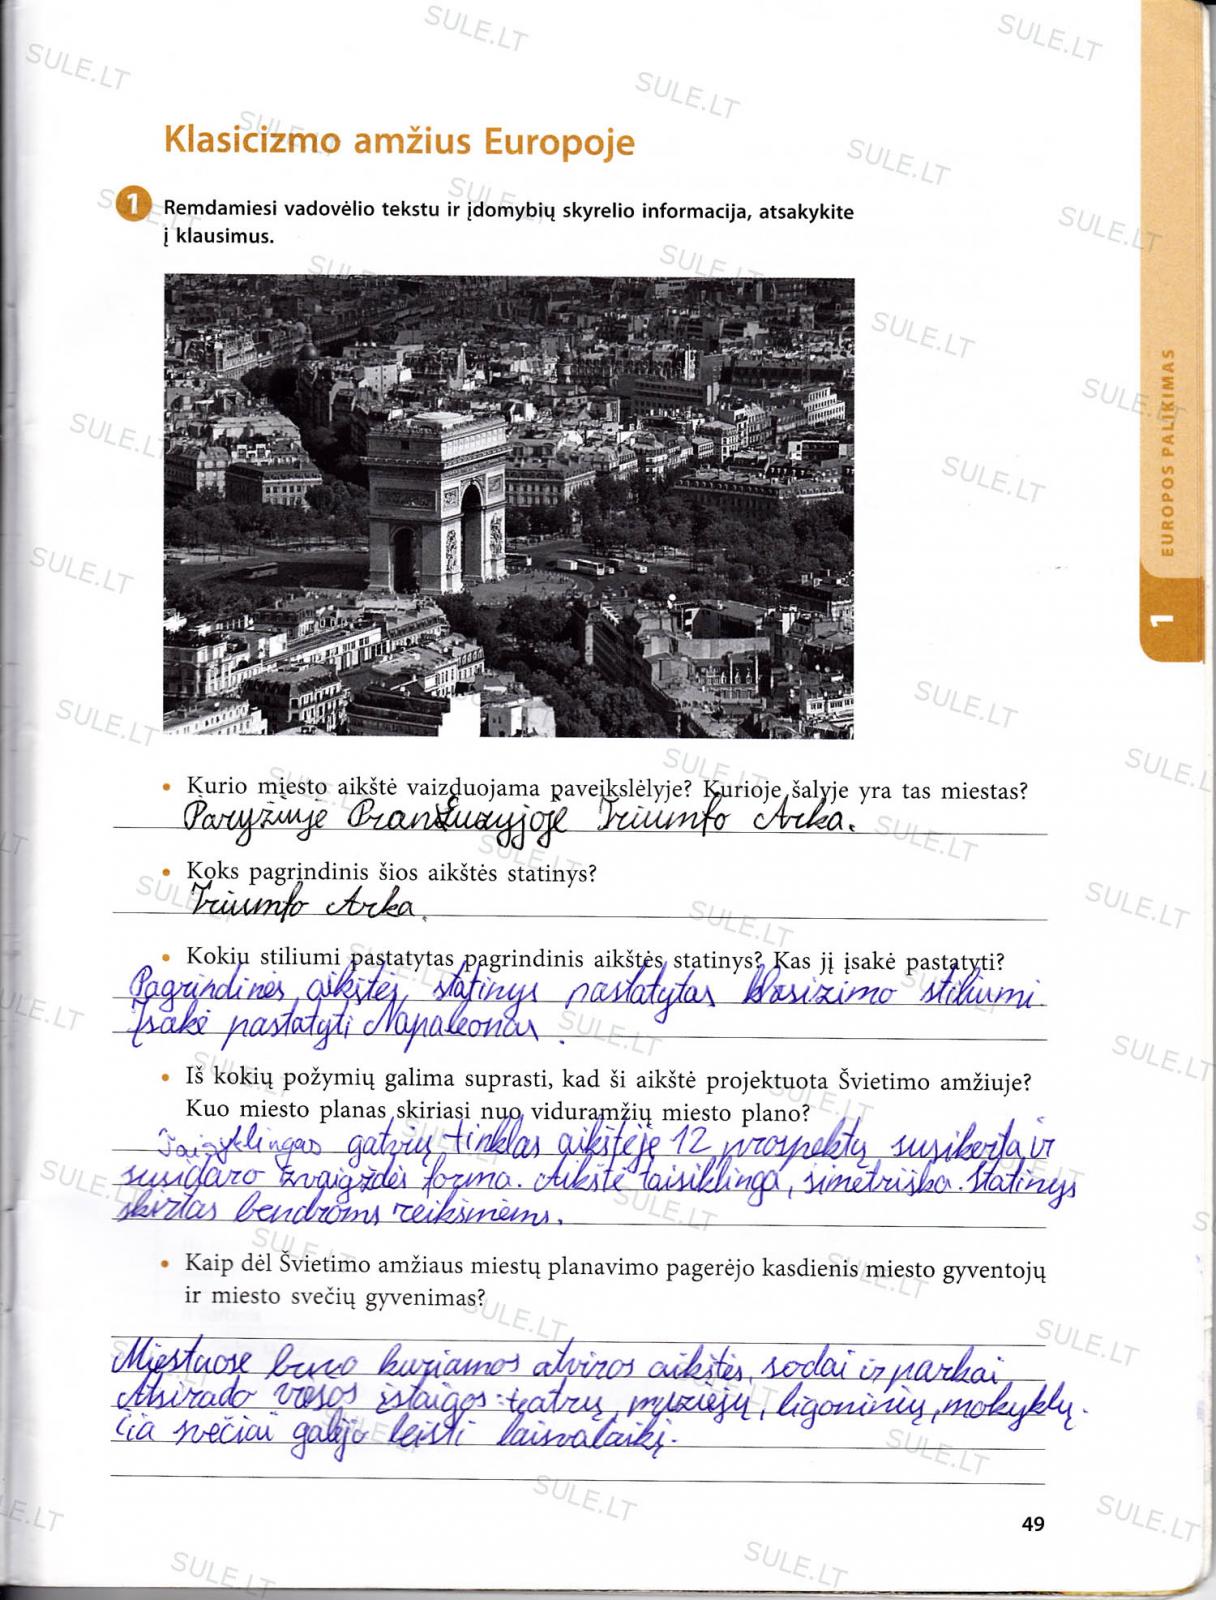 Klasicizmo amžius Europoje
1 Remdamiesi vadovėlio tekstu ir įdomybių skyrelio informacija, atsakykite
į klausimus.
EUROPOS PALIKIMAS
1
• Kurio miesto aikštė vaizduojama paveikslėlyje? Kurioje šalyje yra tas miestas?
Paryžiuje Pranzuzyjoje Triumfo Arka.
• Koks pagrindinis šios aikštės statinys?
Triumfo Arka.
• Kokiu stiliumi pastatytas pagrindinis aikštės statinys? Kas jį įsakė pastatyti?
Pagrindinės aikštės statinys pastatytas klasizimo stiliumi.
Įsakė pastatyti Napaleonas.
• Iš kokių požymių galima suprasti, kad ši aikštė projektuota Švietimo amžiuje?
Kuo miesto planas skiriasi nuo viduramžių miesto plano?
Taisyklingas gatvių tinklas aikštėje 12 prospektų susikerta ir
susidaro žvaigždės forma. Aikštė taisiklinga, simetriška. Statinys
skirtas bendroms reikšmėms.
• Kaip dėl Švietimo amžiaus miestų planavimo pagerėjo kasdienis miesto gyventojų
ir miesto svečių gyvenimas?
Miestuose buvo kuriamos atviros aikštės, sodai ir parkai
Atsirado įstaigos: teatrų, muziejų, ligoninių, mokyklų.
čia svečiai galėjo leisti laisvalaikį.
49
SULE.LT